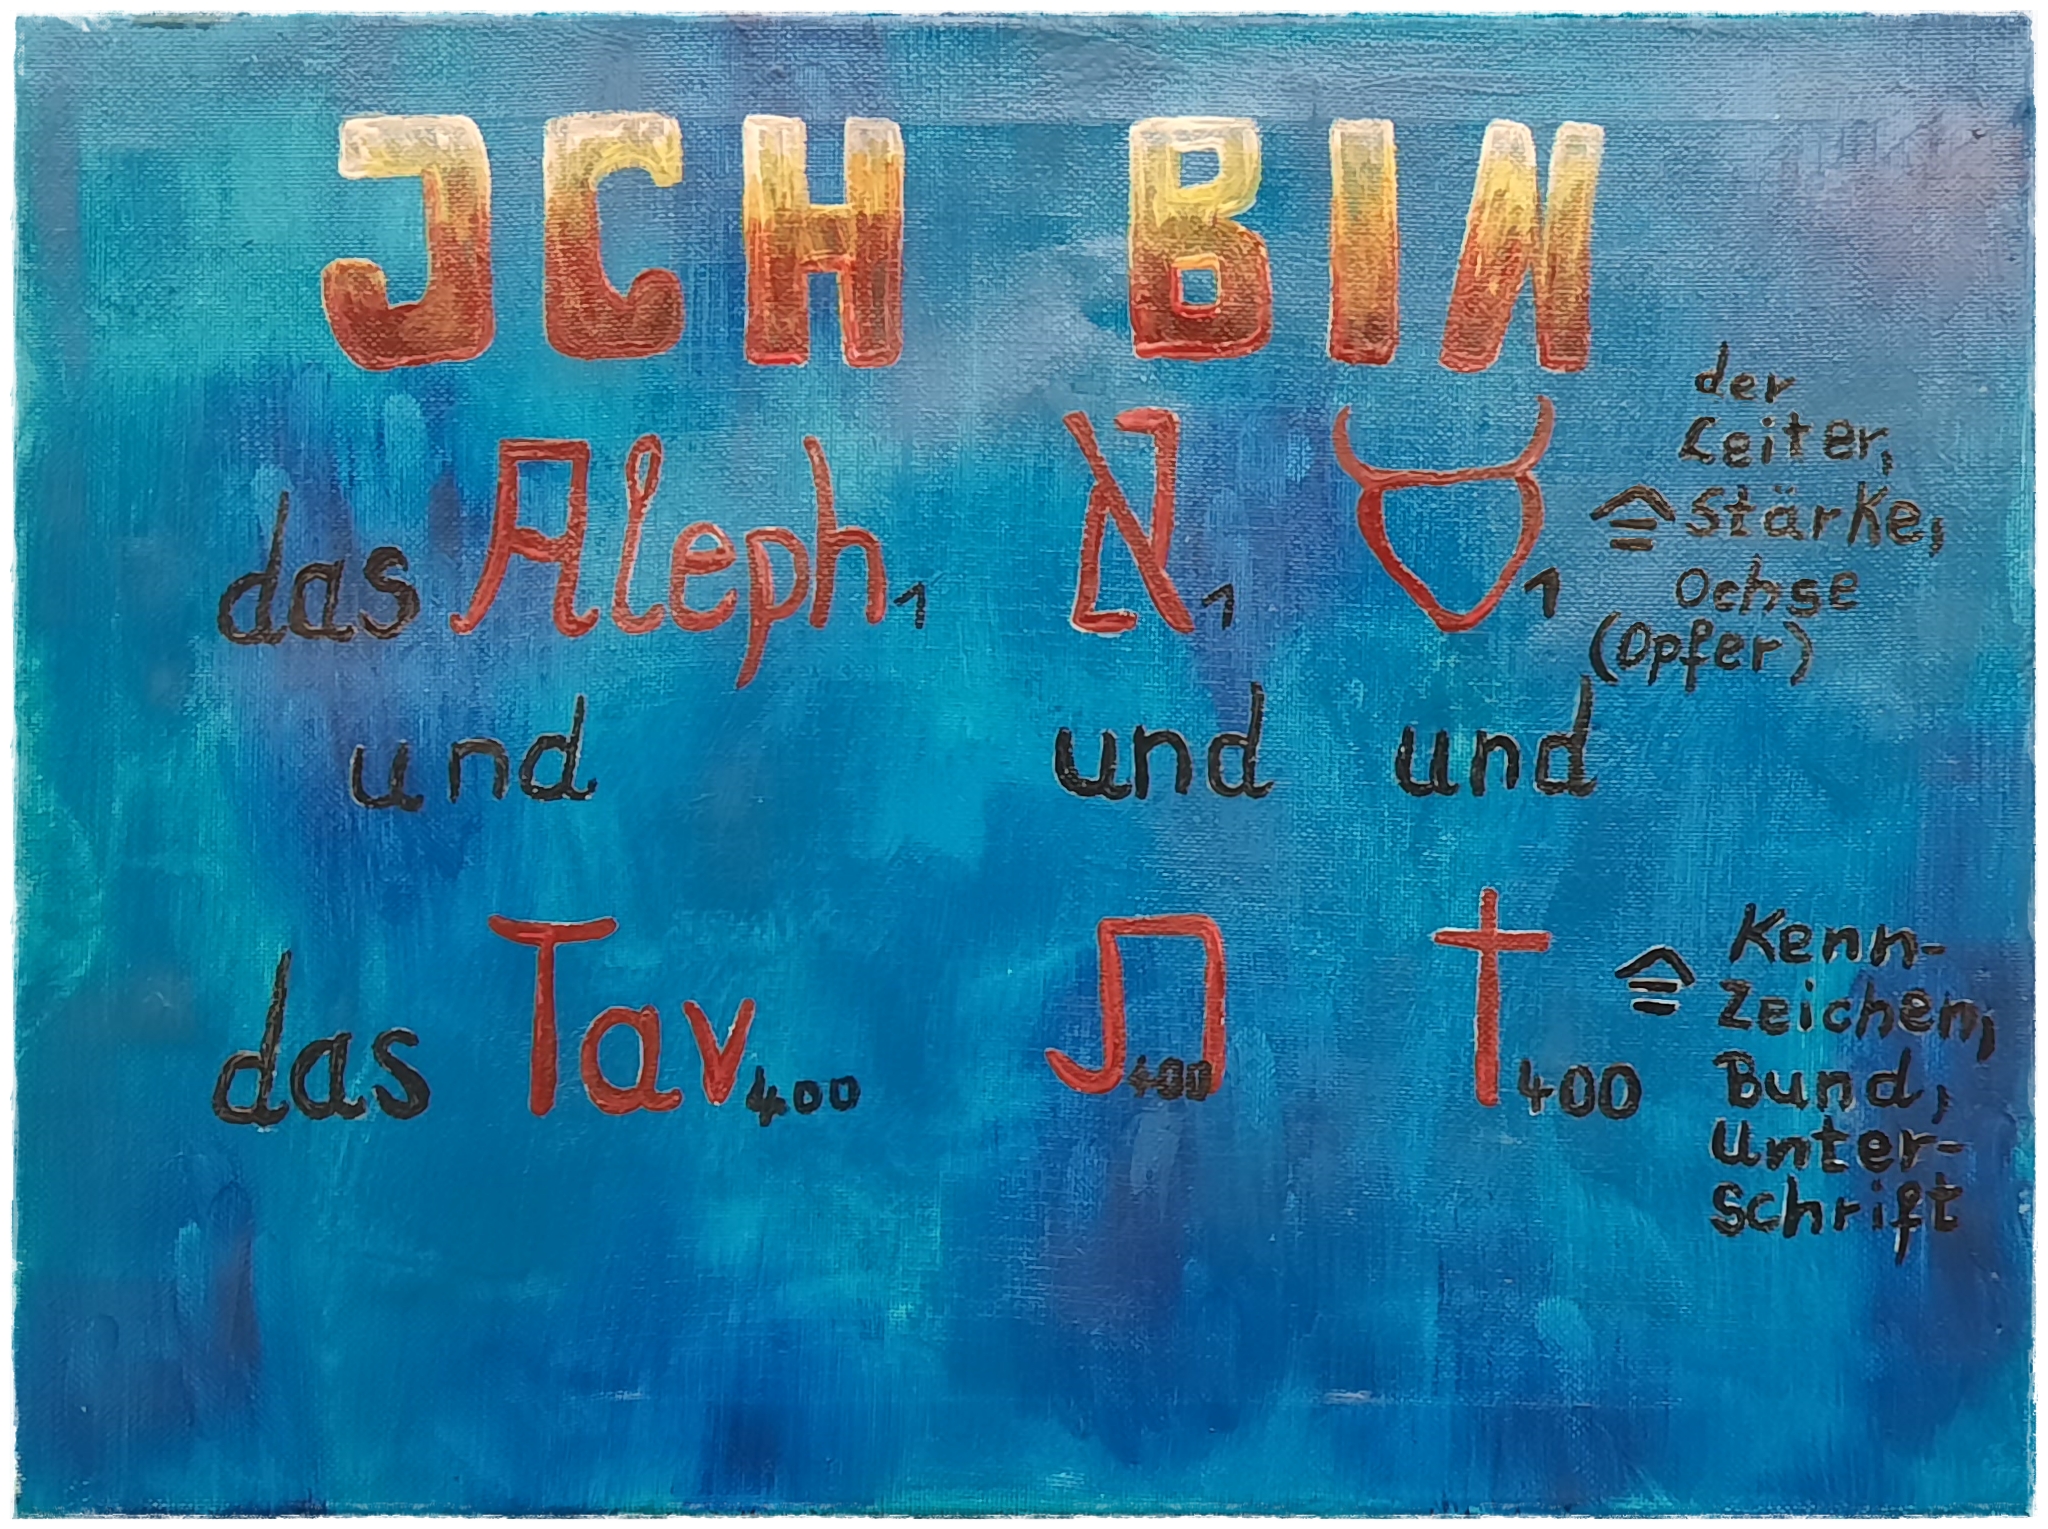 JCH BIN
das Aleph 1 א 1 1 ≙ der
Leiter,
Stärke,
Ochse
(Opfer)
und und und
das Tav 400 ת 400 † 400 ≙ Kenn-
Zeichen,
Bund,
Unter-
Schrift